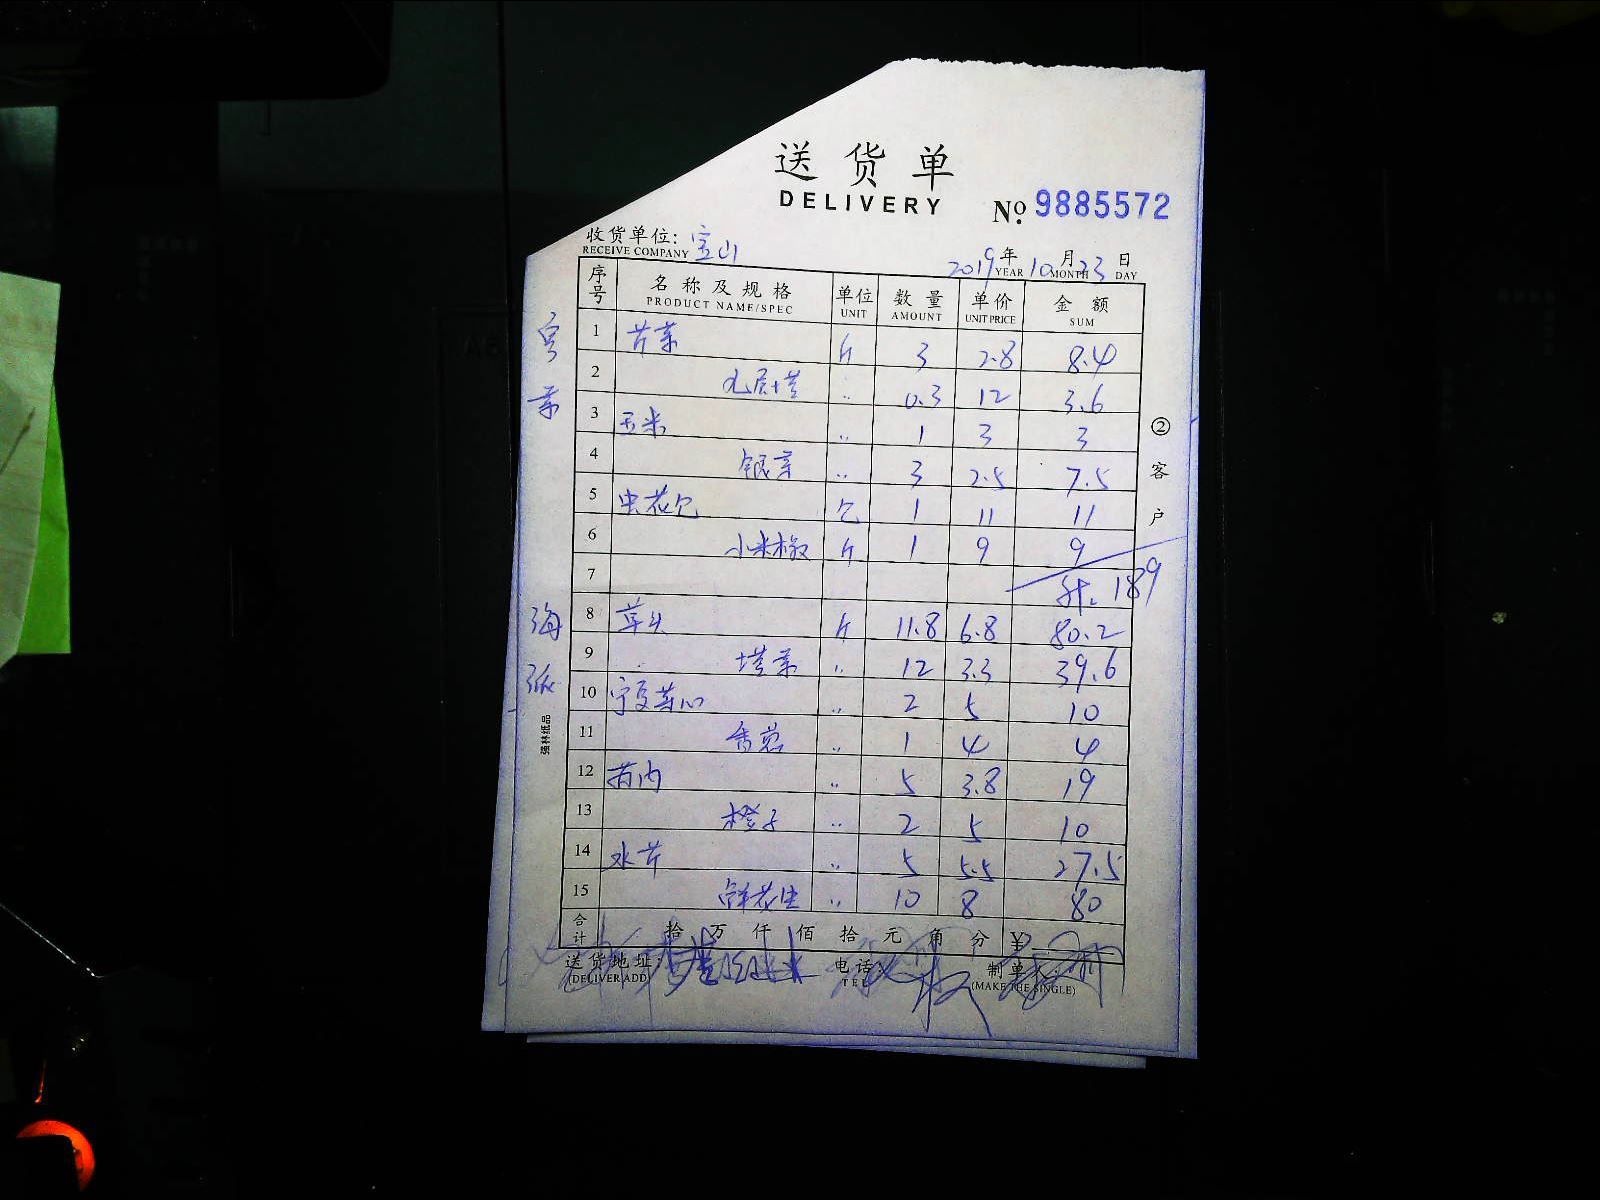 送货单
DELIVERY
№ 9885572
收货单位: 宝山
RECEIVE COMPANY
2019年10月23日
YEAR MONTH DAY
序号 名称及规格 单位 数量 单价 金额
PRODUCT NAME/SPEC UNIT AMOUNT UNIT PRICE SUM
1 芹菜 斤 3 2.8 8.4
2 九层塔 〃 0.3 12 3.6
3 玉米 〃 1 3 3
4 银芽 〃 3 2.5 7.5
5 虫花包 包 1 11 11
6 小米椒 斤 1 9 9
7 189
8 草头 斤 11.8 6.8 80.2
9 塔菜 〃 12 3.3 39.6
10 宁夏菜心 〃 2 5 10
11 香葱 〃 1 4 4
12 5 3.8 19
13 橙子 〃 2 5 10
14 水芹 〃 5 5.5 27.5
15 鲜花生 〃 10 8 80
合计 拾 万 仟 佰 拾 元 角 分 ¥
送货地址: 电话: 制单人:
(DELIVER ADD) TEL (MAKE THE SINGLE)
②客户
海派
强林纸品